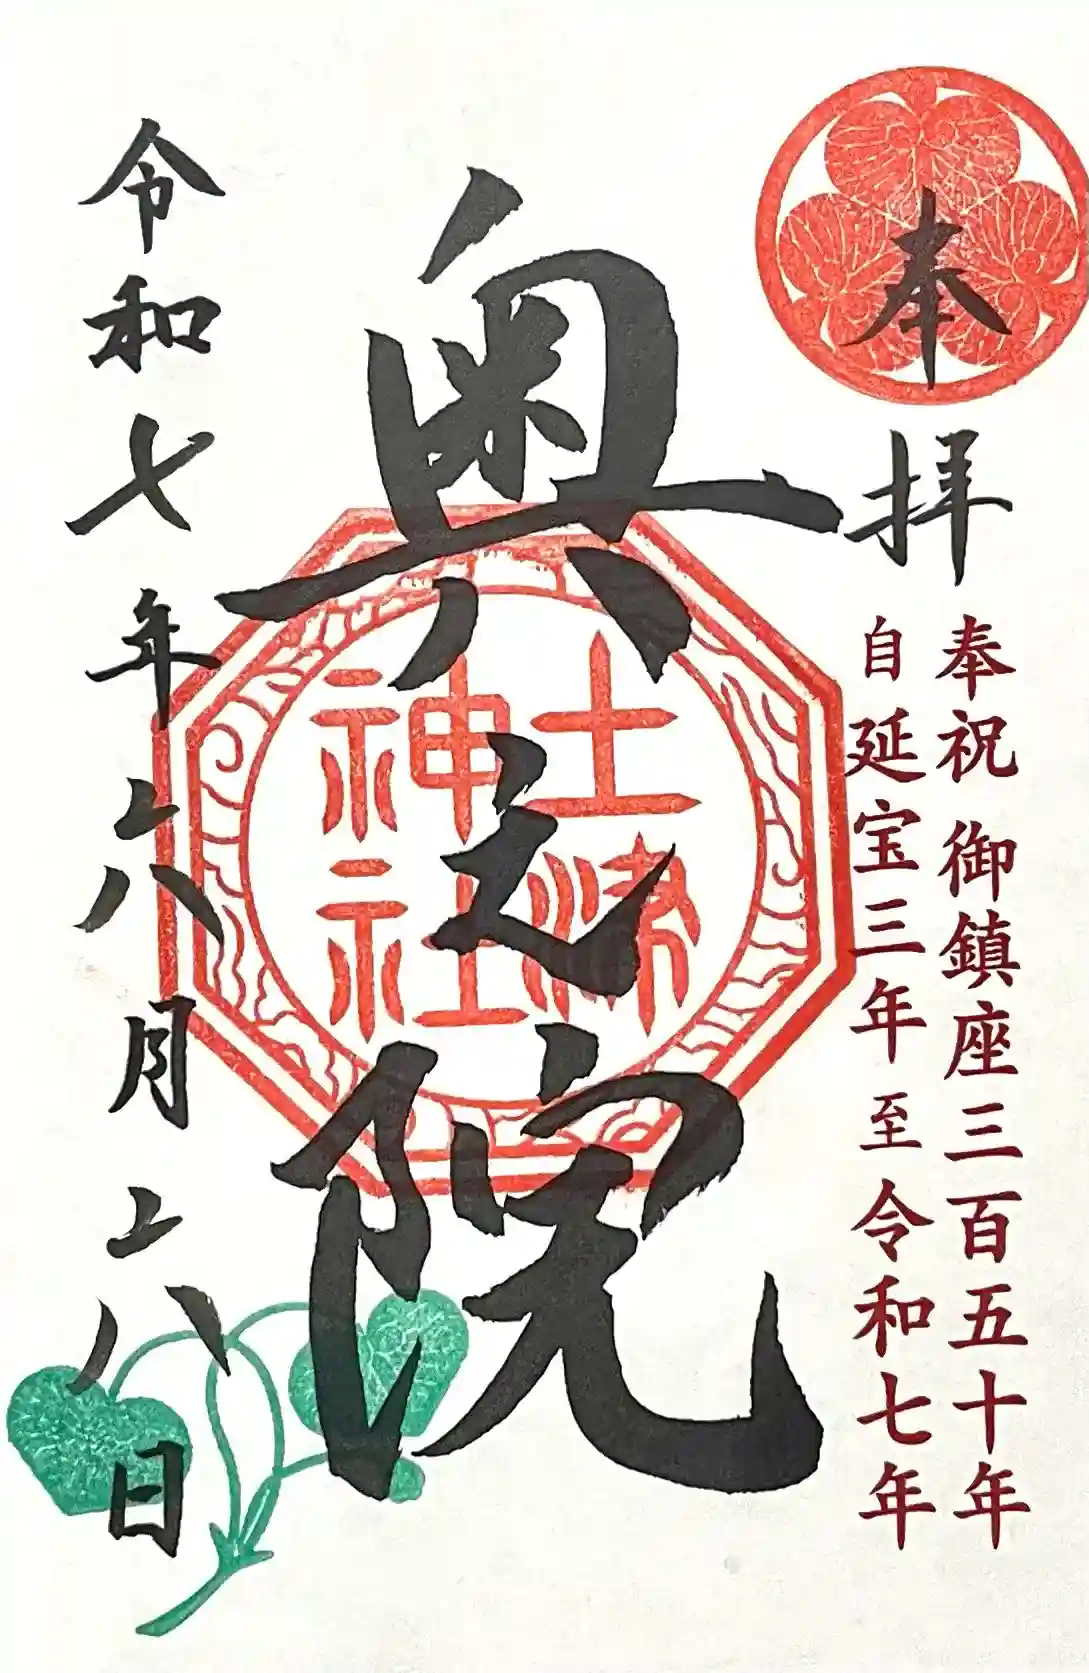 奉拝
奉祝 御鎮座三百五十年
自延宝三年 至令和七年
奥之院
土津
神社
令和七年六月六日